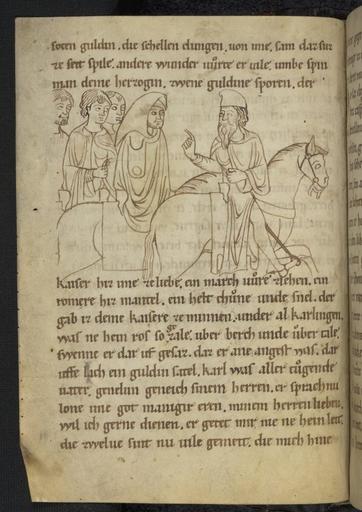 guldin. die schellen clungen. uon ime. sam daz
ze seit spile. andere wunder er uile. umbe spin
man deine herzogin. zwene guldine sporen. der
kaiser hiz ime ze liebe. ein march uůre zihen. ein
romere hiz mantel. ein helt chůne unde snel. der
gab iz deme kaisere ze minnen. under al karlingen.
was ne hein ros so gezale. uber berch unde ůber tale.
swenne er dar uf gesaz. daz er ane angest was. dar
uffe lach ein guldin satel. karl was aller tůgende
uater. genelun geneich sinem herren. er sprach nu
lone ime got maniger eren. minem herren lieben.
wil ich gerne dienen. er getet mir nie ne hein leit.
die zwelue sint nu uile gemeit. die mich hine